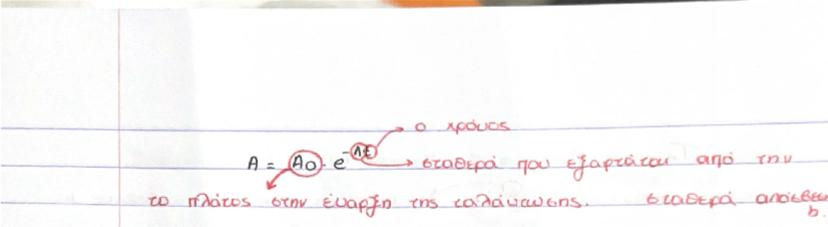 ο χρόνος
A = A₀ · e^-Λt σταθερά που εξαρτάται από την
το πλάτος στην έναρξη της ταλάντωσης. σταθερά απόσβεσης
b.